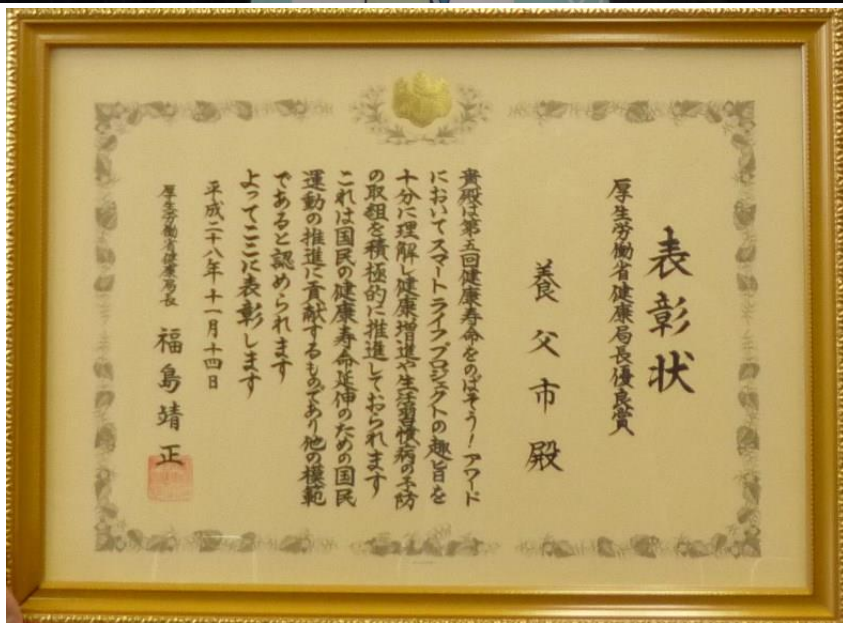 表彰状
厚生労働省健康局長優良賞
養父市殿
貴殿は第五回健康寿命をのばそう!アワード
においてスマートライフプロジェクトの趣旨を
十分に理解し健康増進や生活習慣病の予防
の取組を積極的に推進しておられます
これは国民の健康寿命延伸のための国民
運動の推進に貢献するものであり他の模範
であると認められます
よってここに表彰します
平成二十八年十一月十四日
厚生労働省健康局長 福島靖正